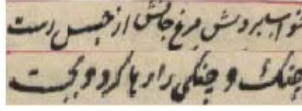 خواست بردش مرغ جانش از حبس رست
چنگ و چنگی را رها کرد و بجست